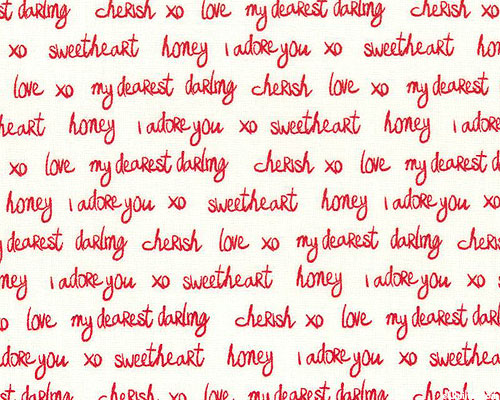 st darling cherish xo love my dearest darling cherish xo
xo sweetheart honey i adore you xo sweetheart hon
love xo my dearest darling cherish love xo my dearest
heart honey i adore you xo sweetheart honey i adore
xo love my dearest darling cherish xo love my dearest d
honey i adore you xo sweetheart honey i adore you xo
y dearest darling cherish love xo my dearest darling cheris
ney i adore you xo sweetheart honey i adore you xo s
o love my dearest darling cherish xo love my dearest darl
adore you xo sweetheart honey i adore you xo sweethea
st darling cherish xo love my dearest darling cherish